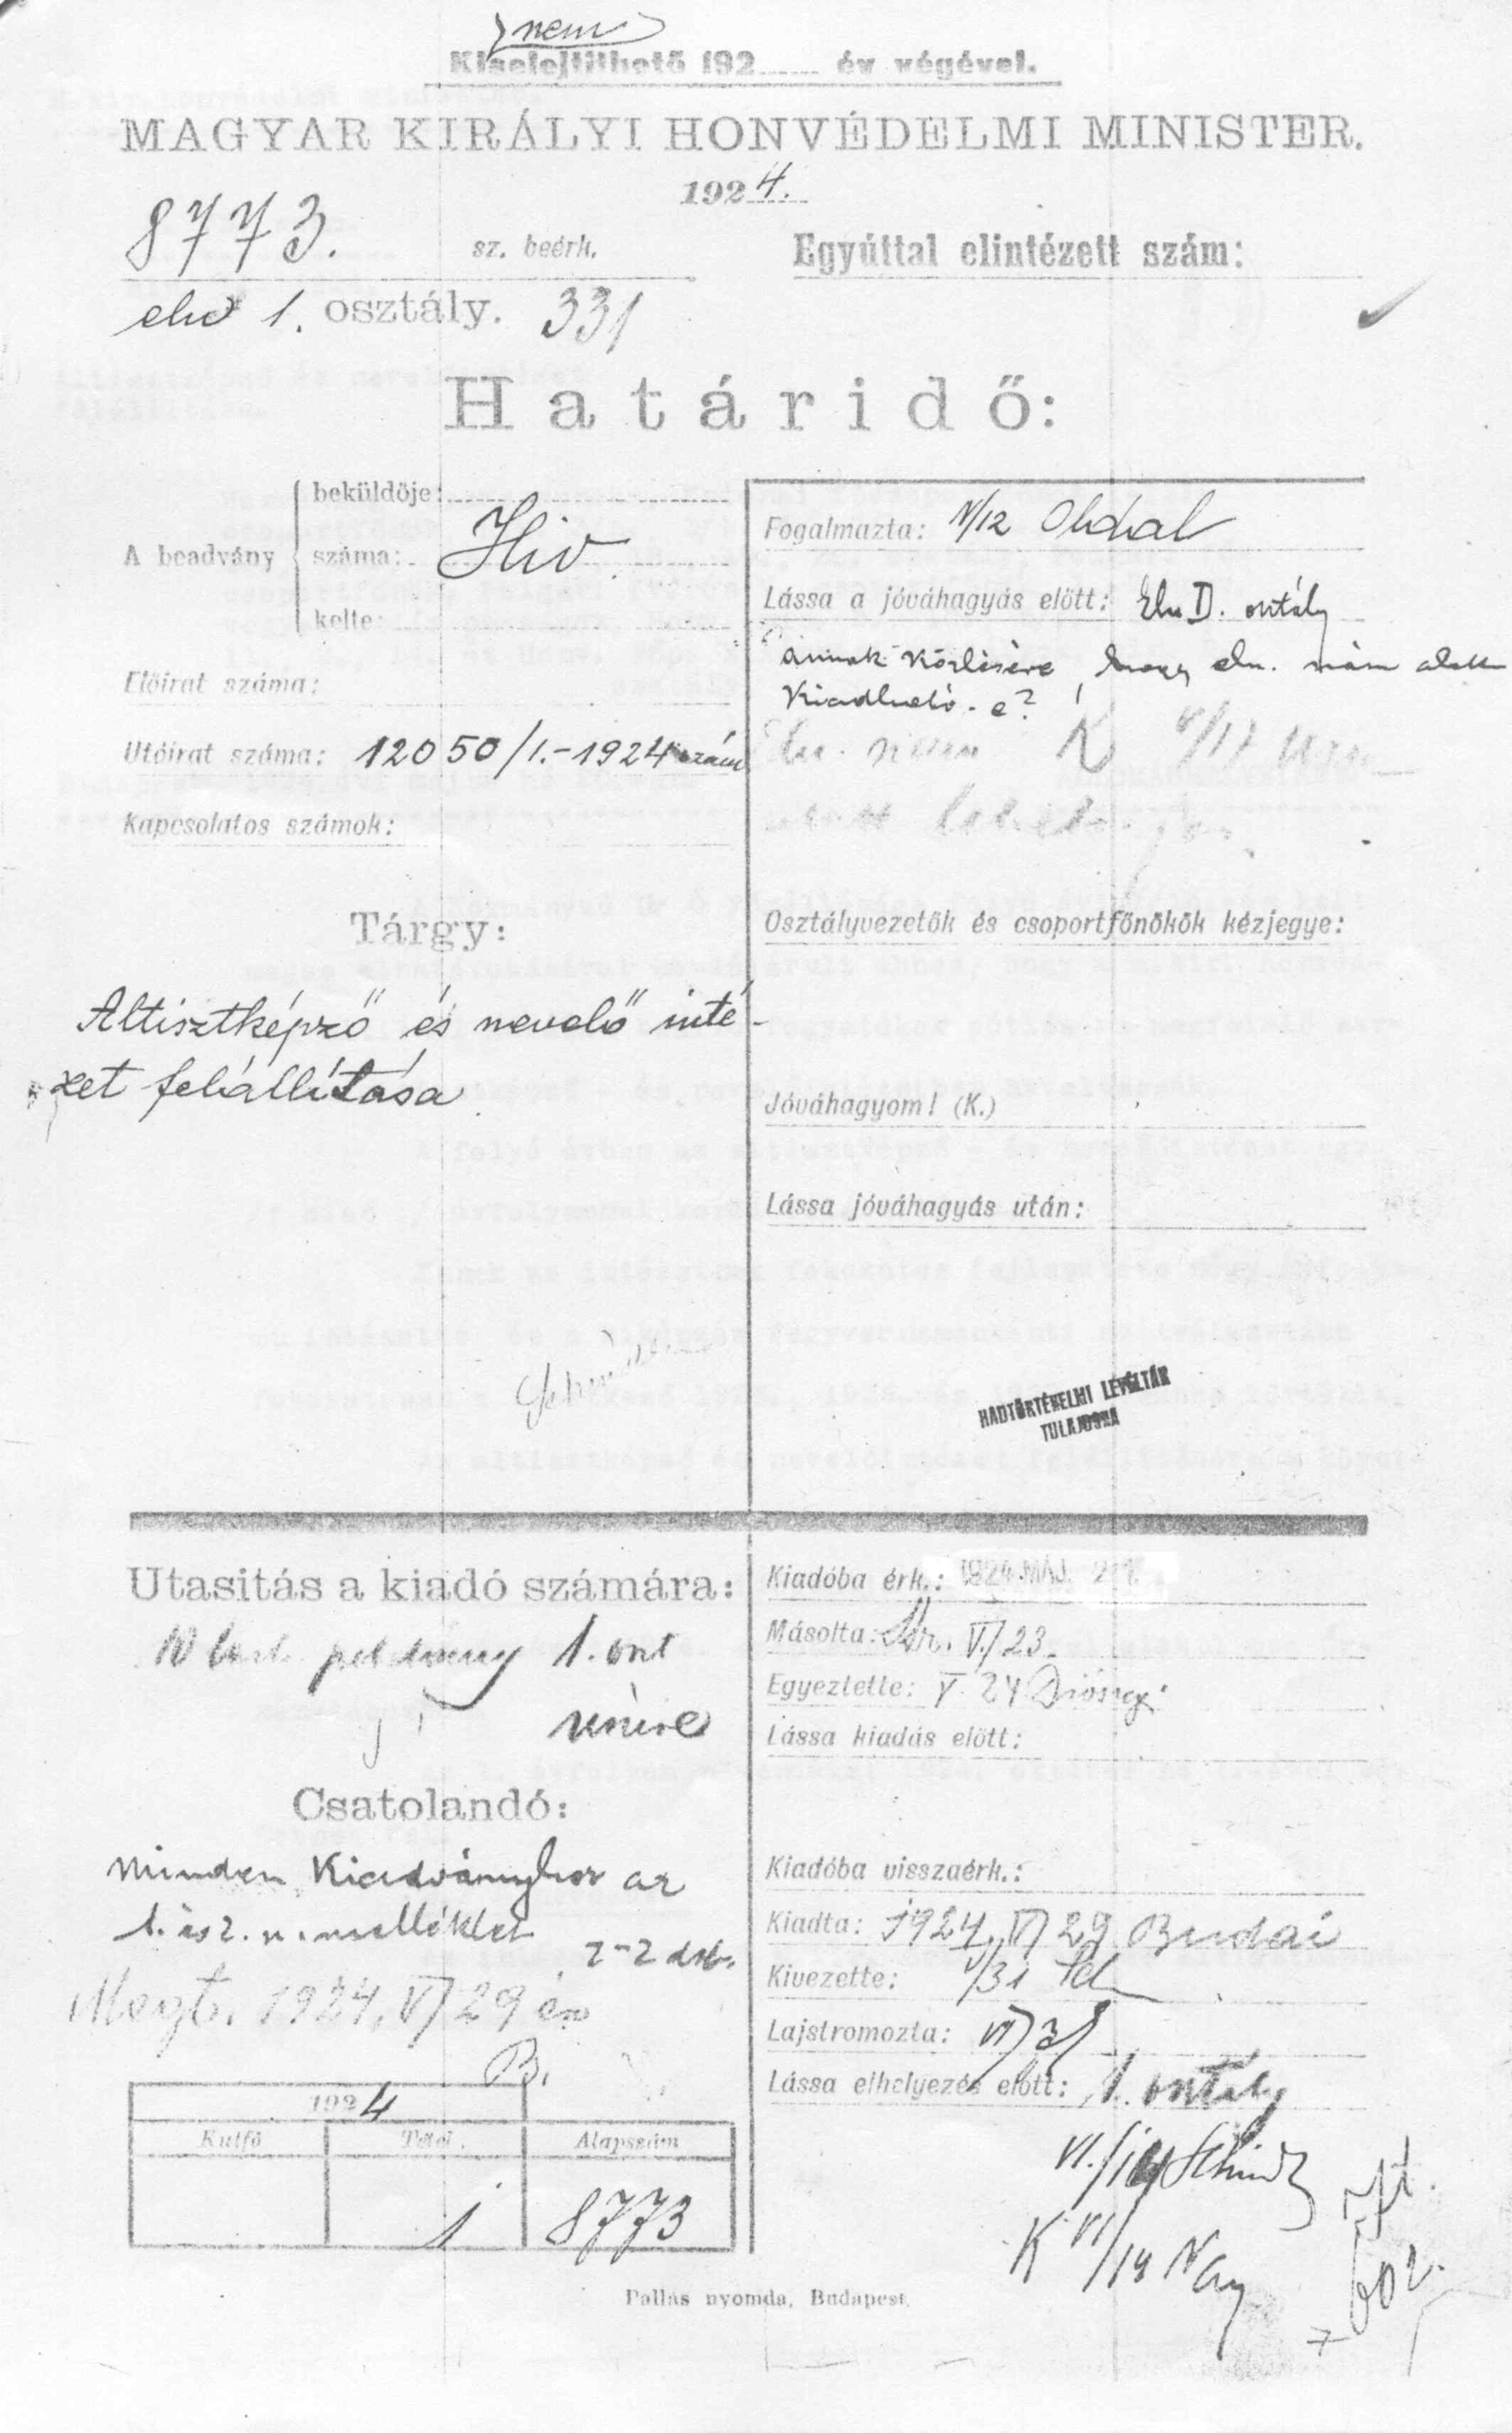 nem
Kiselejtithető 192 év végével.
MAGYAR KIRÁLYI HONVÉDELMI MINISTER.
1924.
8773. sz. beérk.
Egyúttal elintézett szám:
eln 1. osztály. 331
Határidő:
A beadvány
beküldője:
száma: Hiv.
kelte:
Előirat száma:
Utóirat száma: 12050/1.-1924 szám
Kapcsolatos számok:
Fogalmazta: V/12 Oldal
Lássa a jóváhagyás előtt: Eln D. osztály
annak közlésére, hogy eln. szám alatt
kiadható-e?
Tárgy:
Altisztképző és nevelő inté-
zet felállitása
Osztályvezetők és csoportfőnökök kézjegye:
Jóváhagyom! (K.)
Lássa jóváhagyás után:
HADTÖRTÉNELMI LEVÉLTÁR
TULAJDONA
Utasitás a kiadó számára:
10 példány 1. oszt
részére
Csatolandó:
Minden kiadványhoz az
1. és 2. sz. melléklet 2-2 drb.
Megt. 1924. V/29 én
B.
Kiadóba érk.: 1924 MÁJ. 2
Másolta: V./23.
Egyeztette: V. 24
Lássa kiadás előtt:
Kiadóba visszaérk.:
Kiadta: 1924. V/29 Budai
Kivezette: V/31
Lajstromozta: VI/3
Lássa elhelyezés előtt: 1. osztály
VI./14
K VI/14
1924
Kutfő Tétel Alapszám
1 8773
Pallas nyomda, Budapest.